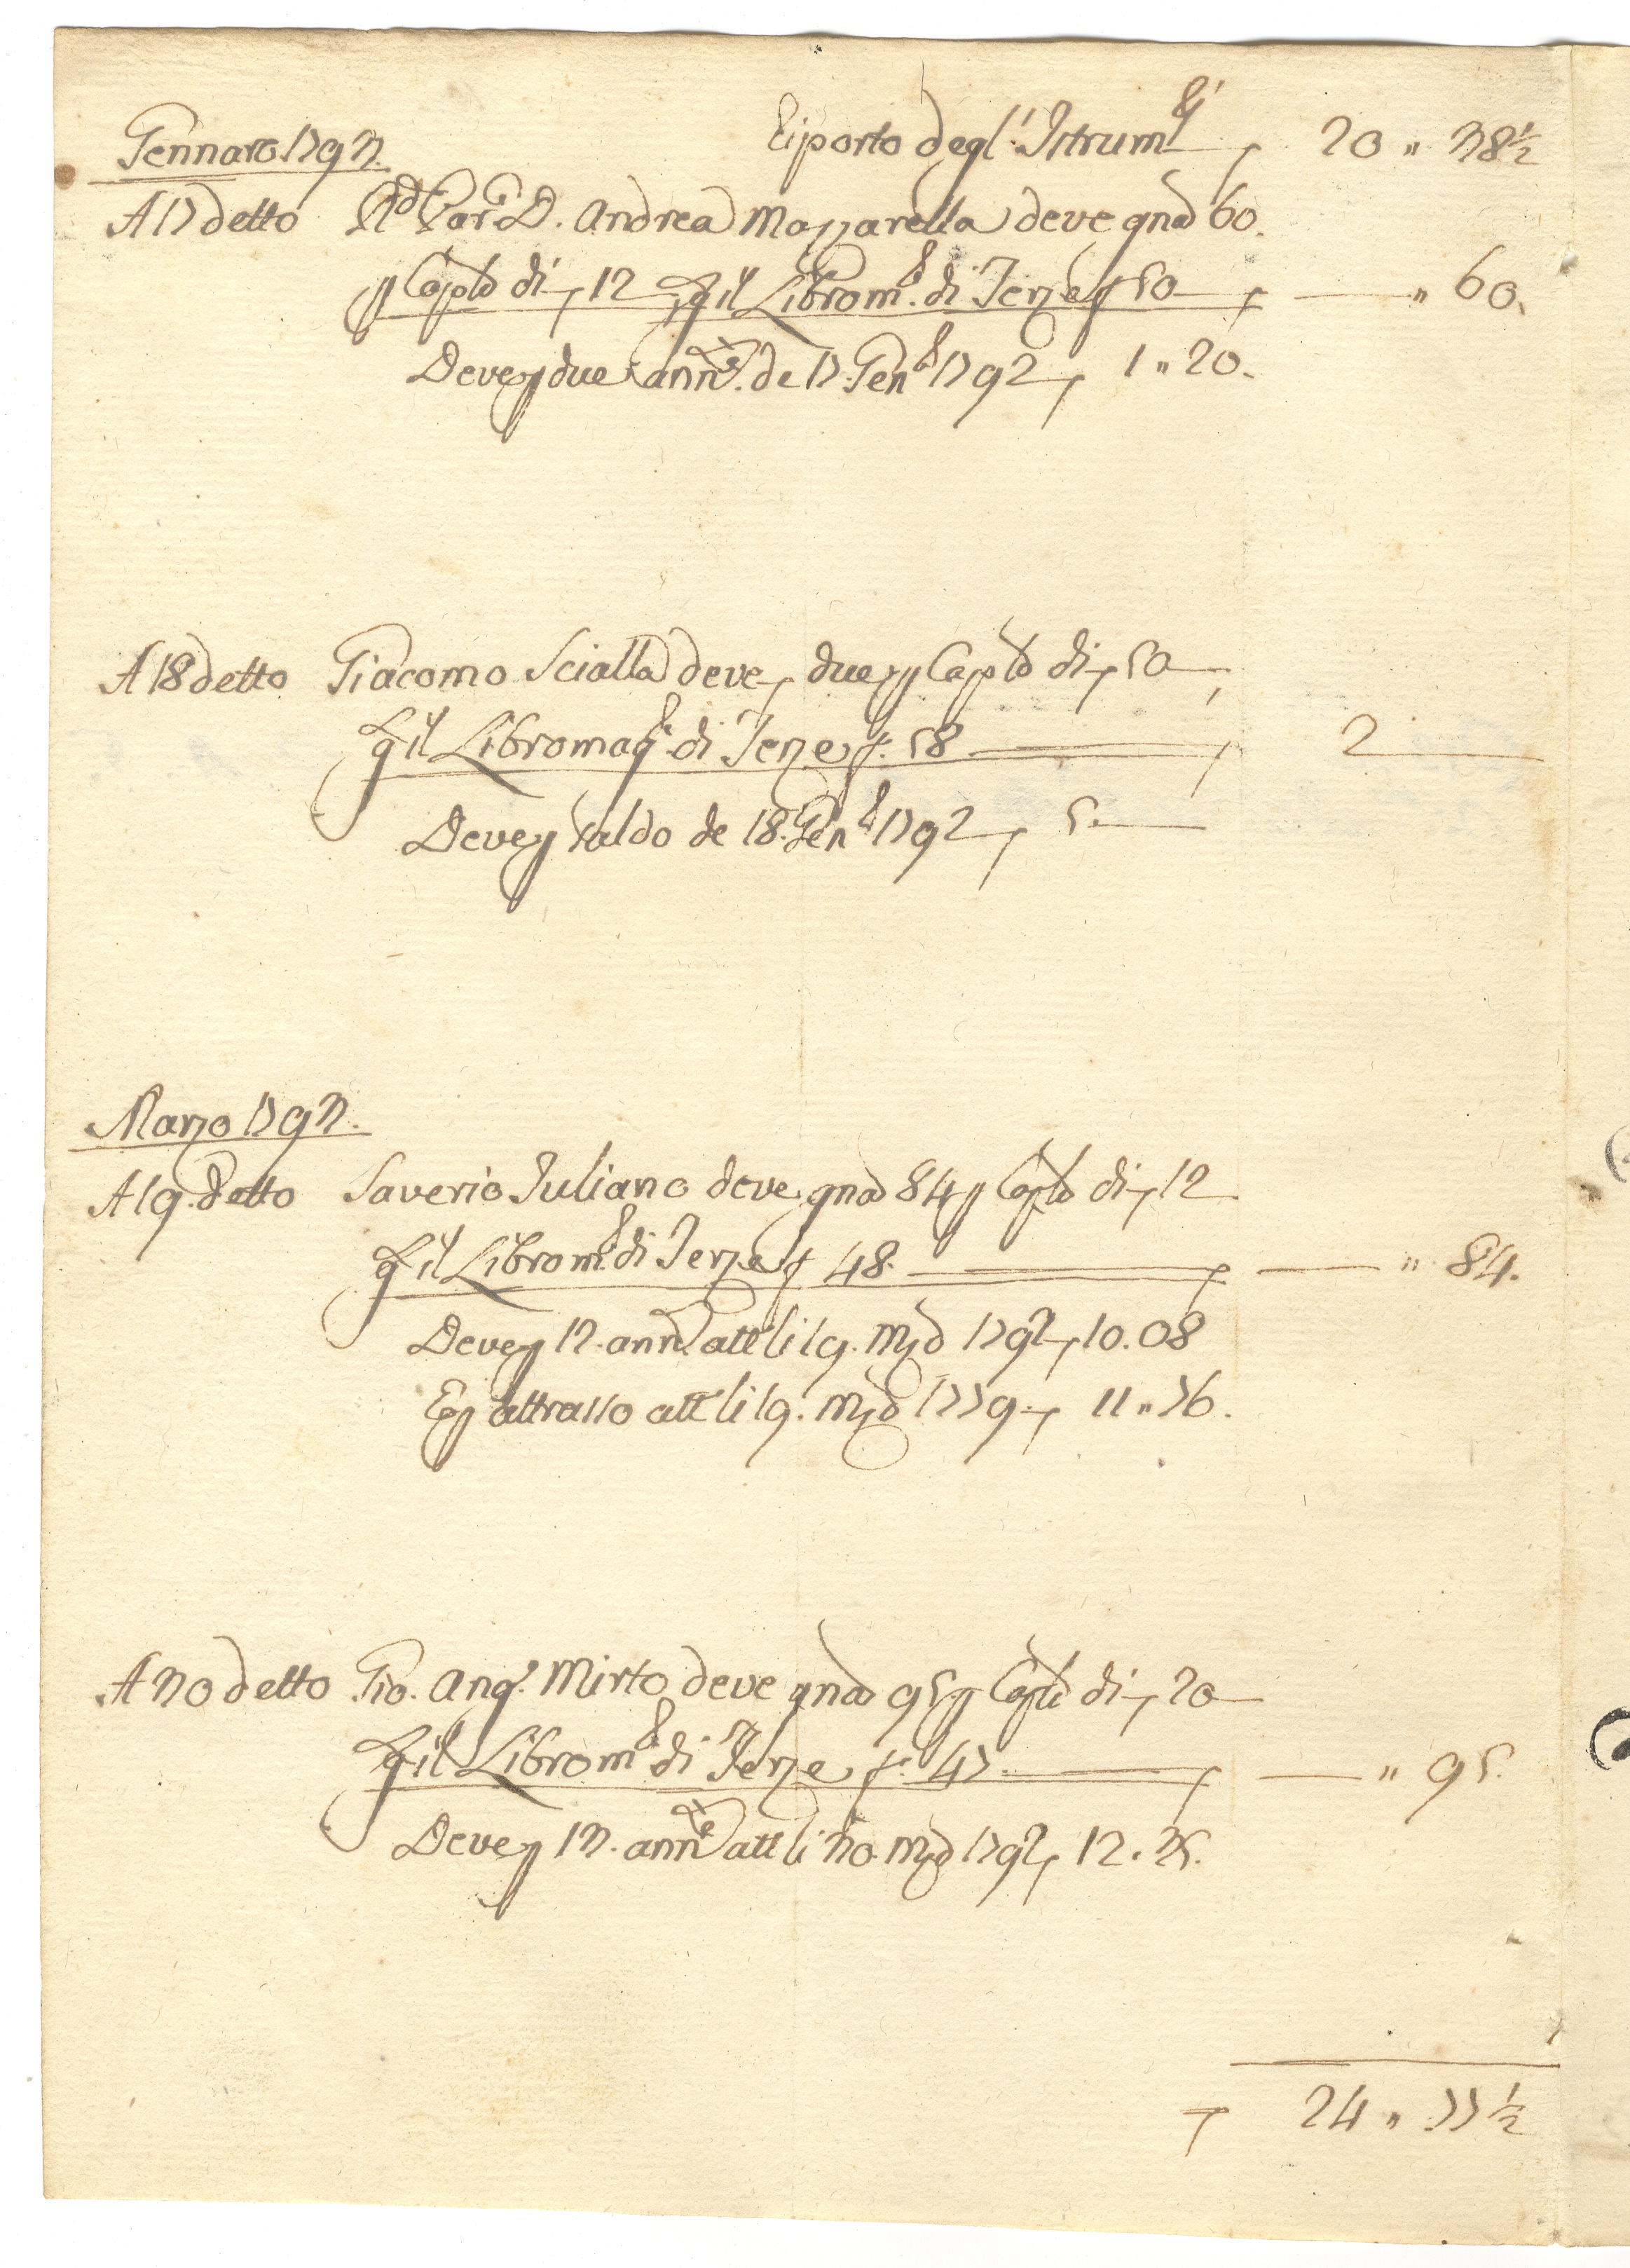 Riporto degl' Istrum.ti 20 " 38½
Gennaro 1793.
A 17 detto Rdo Parco D. Andrea Mazzarella deve gna 60.
p Caplo di 12 il Librom.e di Terze f 50 — " 60.
Deve p due ann.te de 17. Gen.o 1792 1 " 20.
A 18 detto Giacomo Scialla deve due p Caplo di 50
il Libromag.e di Terze f. 58 — 2 —
Deve p saldo de 18. Gen.o 1792 5. —
Marzo 1793.
A 19. detto Saverio Iuliano deve gna 84 p Caplo di 12
il Librom.e di Terze f 48. — " 84.
Deve p 12. ann.te att.e li 19. Mzo 1792 10. 08
E p attrasso att.e li 19. Mzo 1779. 11 " 76.
A 30 detto Gio. Ang.o Mirto deve gna 95 p Caplo di 20
il Librom.e di Terze f. 47. — " 95.
Deve p 13. ann.te att.e li 30. Mzo 1792 12. 35.
24 " 77½